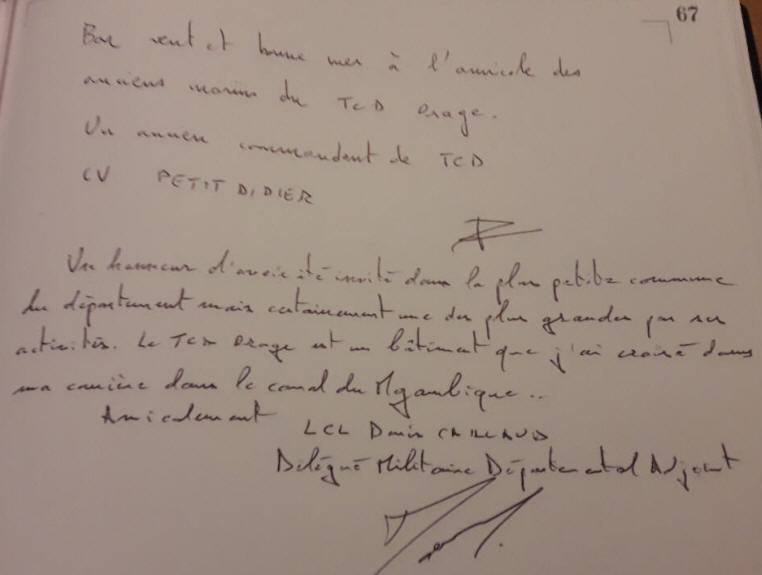 67
Bon vent et bonne mer à l'amicale des
anciens marins du TCD Orage.
Un ancien commandant de TCD
CV PETITDIDIER
Un honneur d'avoir été invité dans la plus petite commune
du département mais certainement une des plus grandes par ses
activités. Le TCD Orage est un bâtiment que j'ai croisé dans
ma carrière dans le canal du Mozambique..
Amicalement
LCL Denis CAILLAUD
Délégué Militaire Départemental Adjoint